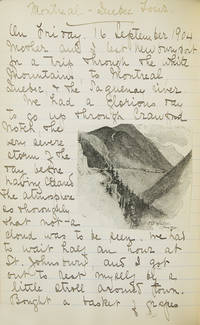 Montreal - Quebec Tour
On Friday, 16 September 1904
Mother and I left Newburyport
for a trip through the White
Mountains to Montreal
Quebec & the Saguenay River
We had a glorious day
to go up through Crawford
Notch the
very severe
storm of the
day before
having cleared
the atmosphere
so thoroughly
that not a
cloud was to be seen. We had
to wait half an hour at
St. Johnsbury and I got
out to rest myself by a
little stroll around town.
Bought a basket of grapes